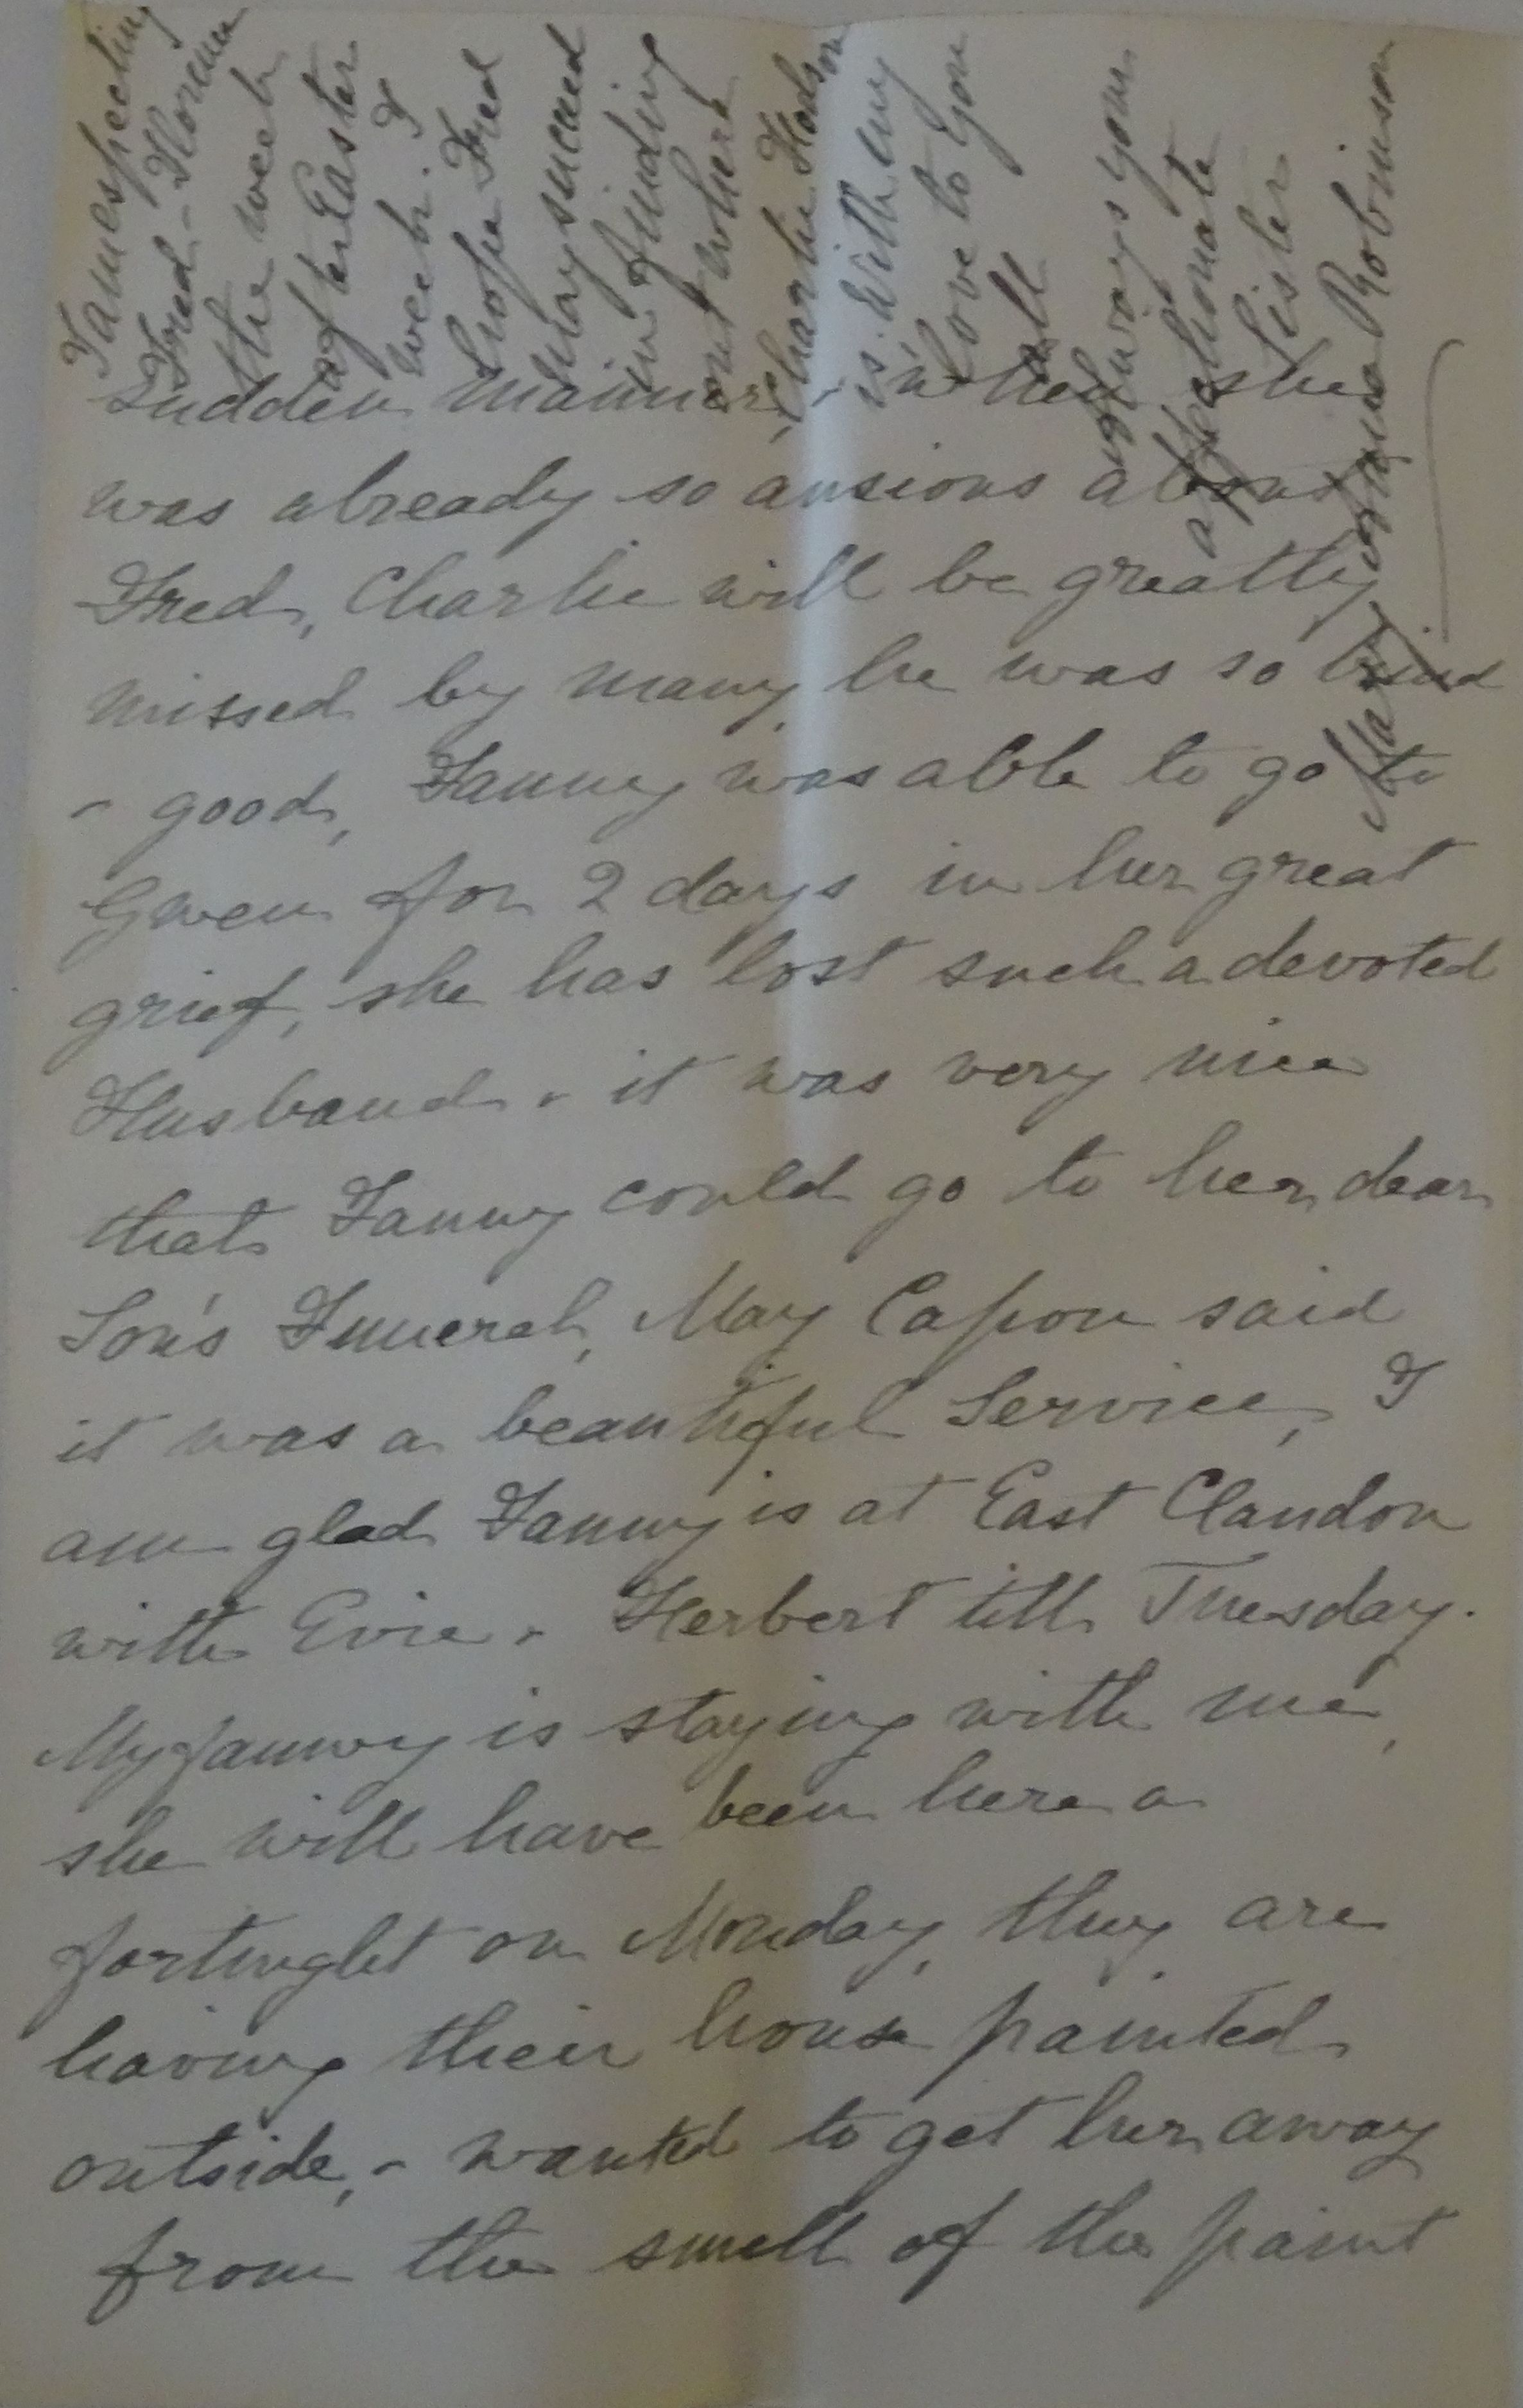 sudden manner, & when she
was already so ansious about
Fred, Charlie will be greatly
missed by many, he was so kind
& good, Fanny was able to go to
Gwen for 2 days in her great
grief, she has lost such a devoted
Husband & it was very nice
that Fanny could go to her dear
Son's Funeral, May Capon said
it was a beautiful Service, I
am glad Fanny is at East Clandon
with Evie & Herbert till Tuesday.
My Fanny is staying with me,
she will have been here a
fortinght on Monday, they are
having their house painted
outside, & wanted to get her away
from the smell of the paint
I am expecting
Fred & Florence
the week
after Easter
week. I
hope Fred
may succeed
in finding
out where
Charlie Hodson
is. With my
love to you
all
always your
affectionate
Sister
Mary Robinson